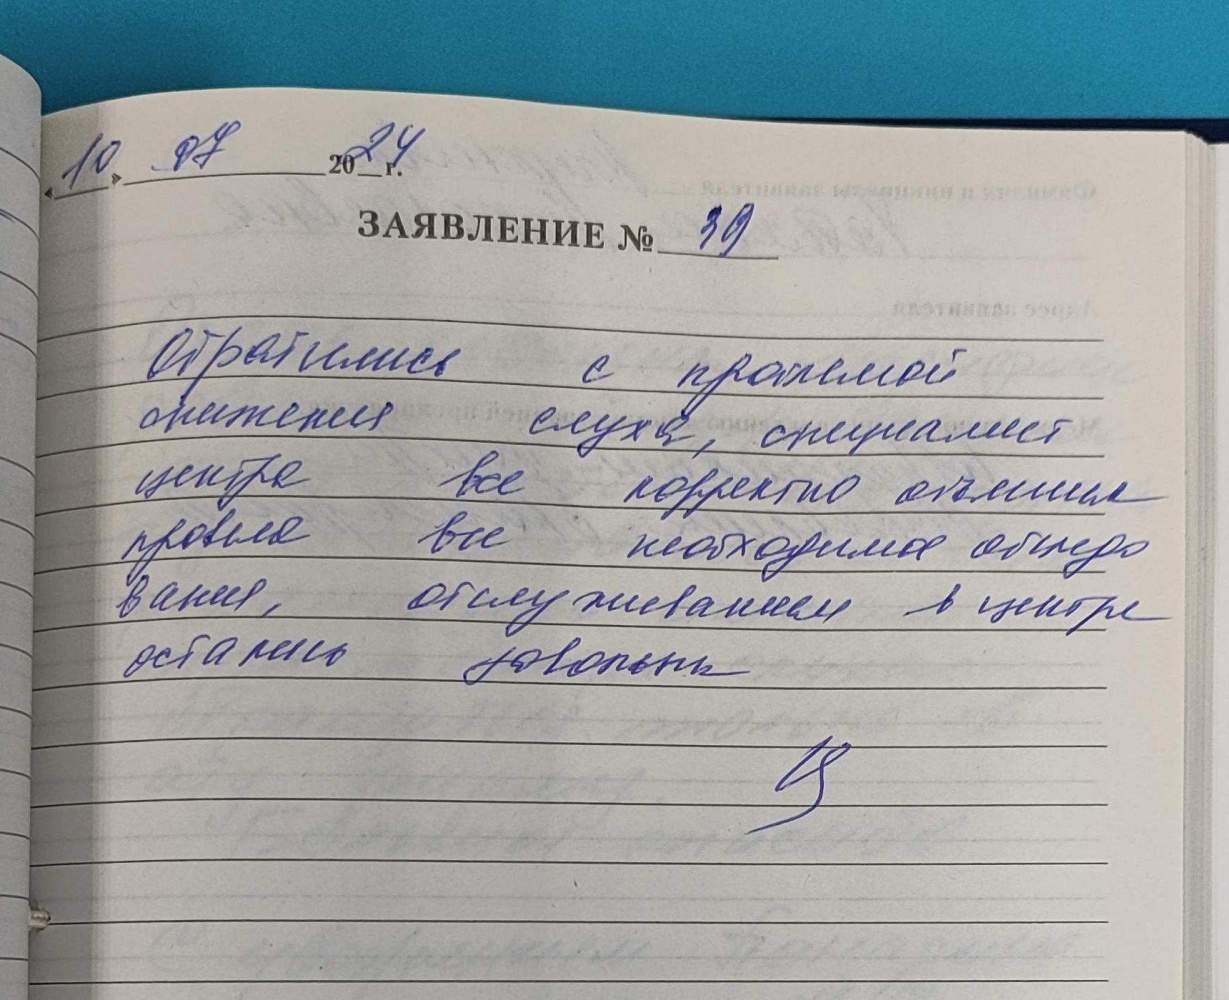 «10» 07 2024 г.
ЗАЯВЛЕНИЕ № 39
Обратились с проблемой
снижения слуха, специалист
центра все корректно объяснил
провела все необходимое обследо
вание, обслуживанием в центре
остались довольны